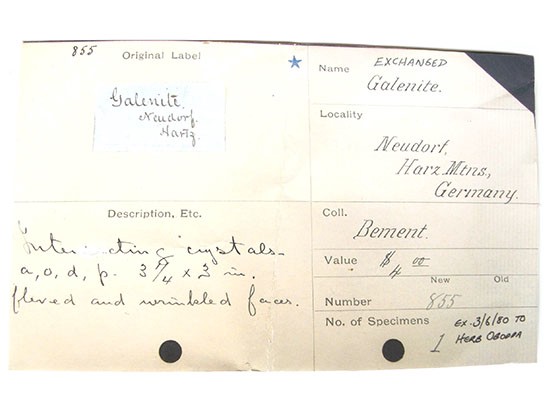 855
Original Label
Galenite.
Neudorf.
Hartz.
Description, Etc.
Interesting crystals-
a, o, d, p. 3 1/4 x 3 in.
and wrinkled faces.
EXCHANGED
Name Galenite.
Locality
Neudorf,
Harz Mtns.,
Germany.
Coll.
Bement.
Value $4 00
New Old
Number 855
No. of Specimens 1
EX. 3/6/80 TO
HERB OBODDA